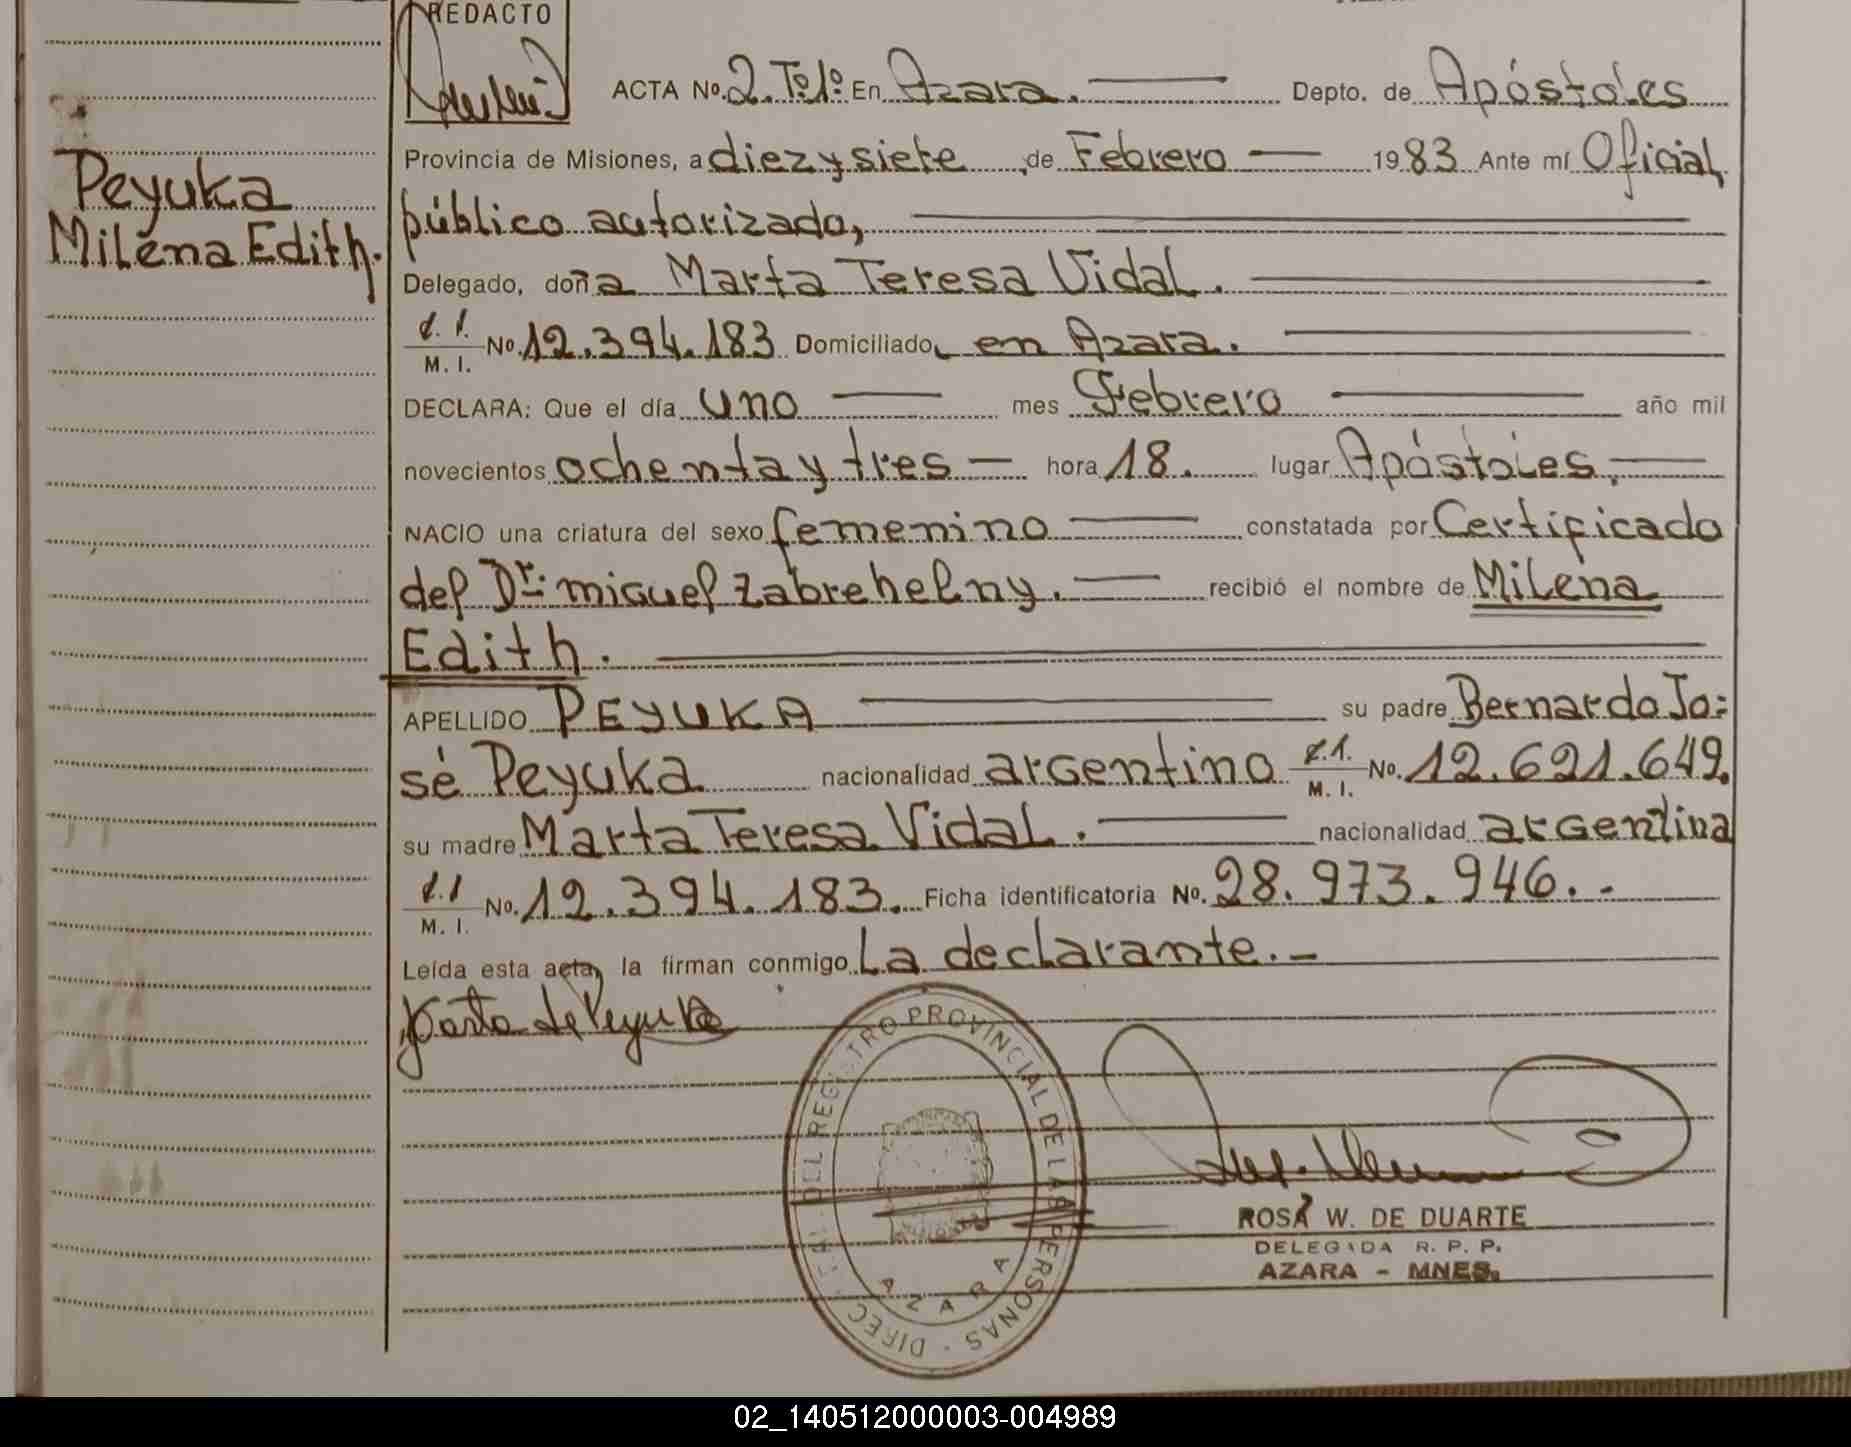 REDACTO
ACTA No. 2. Tº1º En Azara. Depto. de Apóstoles
Provincia de Misiones, a diez y siete de Febrero 1983 Ante mí Oficial
público autorizado,
Peyuka
Milena Edith.
Delegado, doña Marta Teresa Vidal.
C.I.
M. I. No. 12.394.183 Domiciliado, en Azara.
DECLARA: Que el día uno mes Febrero año mil
novecientos ochenta y tres hora 18. lugar Apóstoles,
NACIO una criatura del sexo femenino constatada por Certificado
del Dr. miguel Zabrehelny. recibió el nombre de Milena
Edith.
APELLIDO PEYUKA su padre Bernardo Jo=
sé Peyuka nacionalidad argentino C.I. M. I. No. 12.621.649.
su madre Marta Teresa Vidal. nacionalidad argentina
C.I.
M. I. No. 12.394.183. Ficha identificatoria No. 28.973.946.-
Leída esta acta, la firman conmigo La declarante.-
Marta de Peyuka
DEL REGISTRO PROVINCIAL DE LAS PERSONAS
AZARA
ROSA W. DE DUARTE
DELEGADA R. P. P.
AZARA - MNES.
02_140512000003-004989